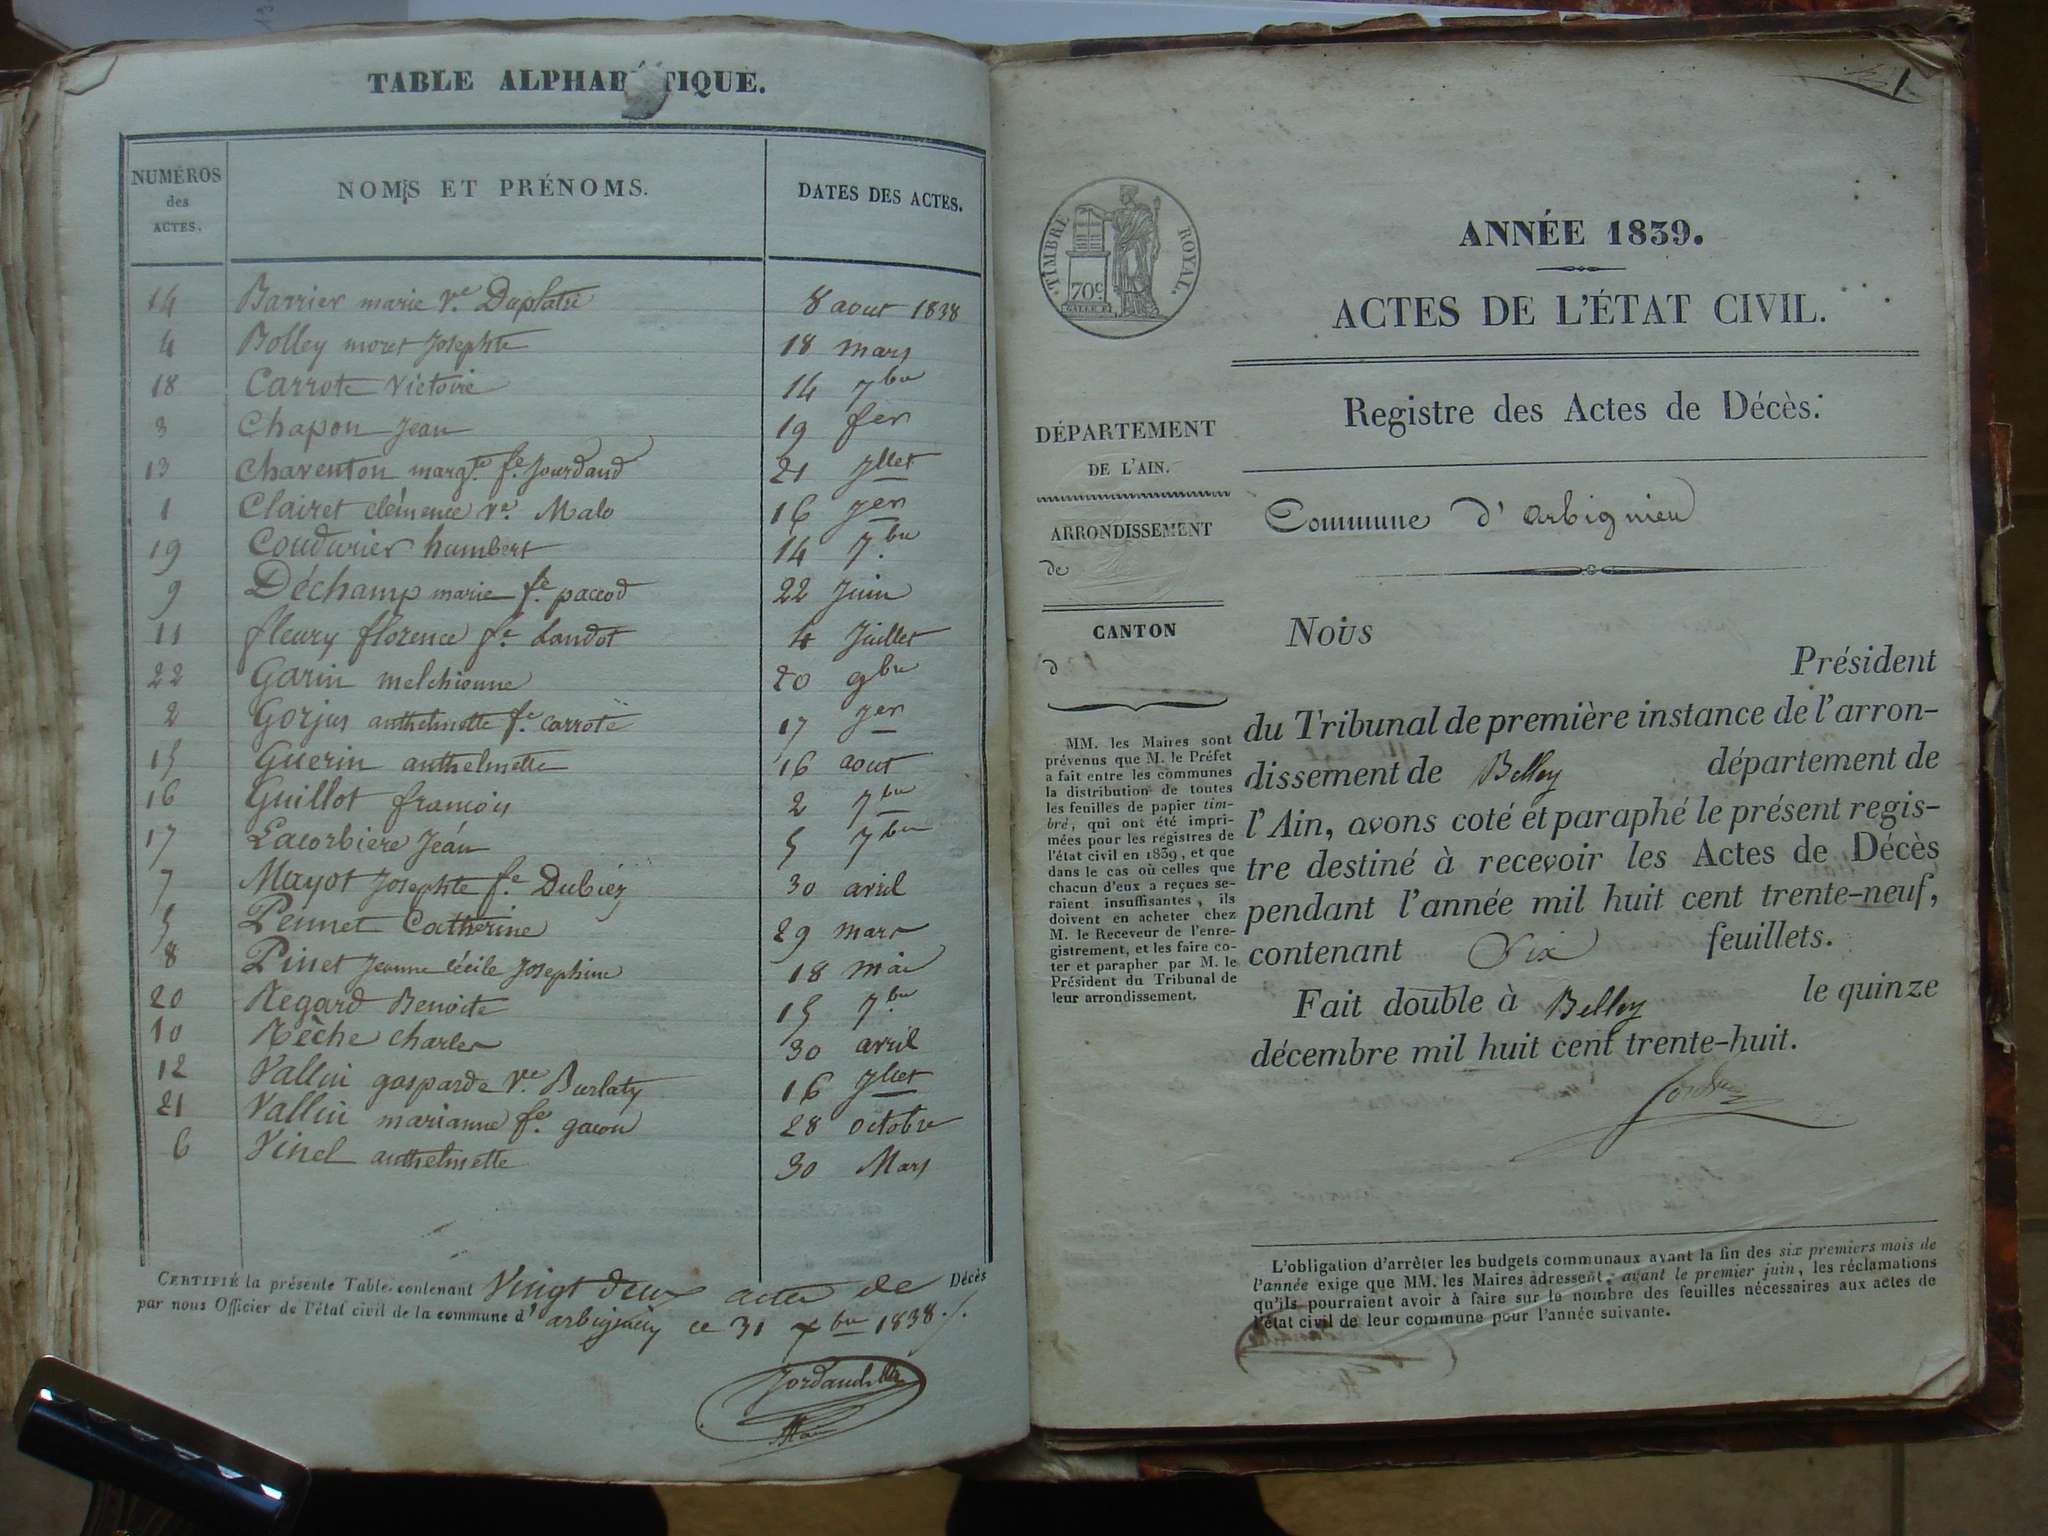 TABLE ALPHABÉTIQUE.
NUMÉROS des ACTES.
NOMS ET PRÉNOMS.
DATES DES ACTES.
14 Barrier marie Ve. Duplatre 8 aout 1838
4 Bolley moret Josephte 18 mars
18 Carrote Victoire 14 7bre
3 Chapon Jean 19 fer
13 Chaventon margte. fe. Jourdand 21 Jllet
1 Clairet clémence Ve. Malo 16 jer
19 Coudurier humbert 14 7.bre
9 Déchamp marie fe. paccod 22 Juin
11 fleury florence fe. Landot 4 Juillet
22 Garin melchionne 20 9bre
2 Gorjus anthelmette fe. carrote 17 jer
15 Guerin anthelmette 16 aout
16 Guillot françois 2 7bre
17 Lacorbiere Jean 5 7bre
7 Mayot Josephte fe. Dubiez 30 avril
5 Pennet Catherine 29 mars
8 Pinet Jeanne Cécile Josephine 18 mai
20 Regard Benoite 15 7.bre
10 Rèche charles 30 avril
12 Vallin gasparde Ve. Burlaty 16 Jllet
21 Vallin marianne fe. gacon 28 octobre
6 Vinel anthelmette 30 Mars
CERTIFIÉ la présente Table contenant Vingt deux actes de Décès
par nous Officier de l'état civil de la commune d' arbignieu ce 31 xbre 1838 ./.
1
TIMBRE ROYAL.
70c
ANNÉE 1839.
ACTES DE L'ÉTAT CIVIL.
Registre des Actes de Décès.
Commune d'arbignieu
DÉPARTEMENT
DE L'AIN.
ARRONDISSEMENT
de
CANTON
d
MM. les Maires sont
prévenus que M. le Préfet
a fait entre les communes
la distribution de toutes
les feuilles de papier tim-
bré, qui ont été impri-
mées pour les registres de
l'état civil en 1839, et que
dans le cas où celles que
chacun d'eux a reçues se-
raient insuffisantes, ils
doivent en acheter chez
M. le Receveur de l'enre-
gistrement, et les faire co-
ter et parapher par M. le
Président du Tribunal de
leur arrondissement.
Nous
Président
du Tribunal de première instance de l'arron-
dissement de Belley département de
l'Ain, avons coté et paraphé le présent regis-
tre destiné à recevoir les Actes de Décès
pendant l'année mil huit cent trente-neuf,
contenant Six feuillets.
Fait double à Belley le quinze
décembre mil huit cent trente-huit.
L'obligation d'arrêter les budgets communaux avant la fin des six premiers mois de
l'année exige que MM. les Maires adressent, avant le premier juin, les réclamations
qu'ils pourraient avoir à faire sur le nombre des feuilles nécessaires aux actes de
l'état civil de leur commune pour l'année suivante.